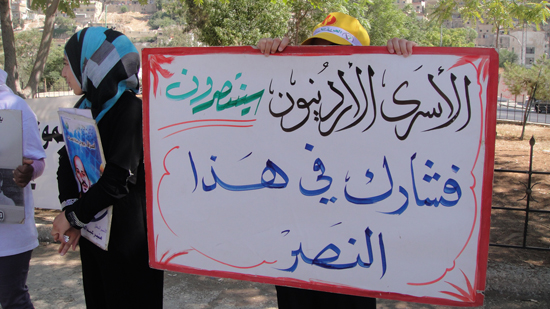 الأسرى الأردنيون سينتصرون
فشارك في هذا
النصر